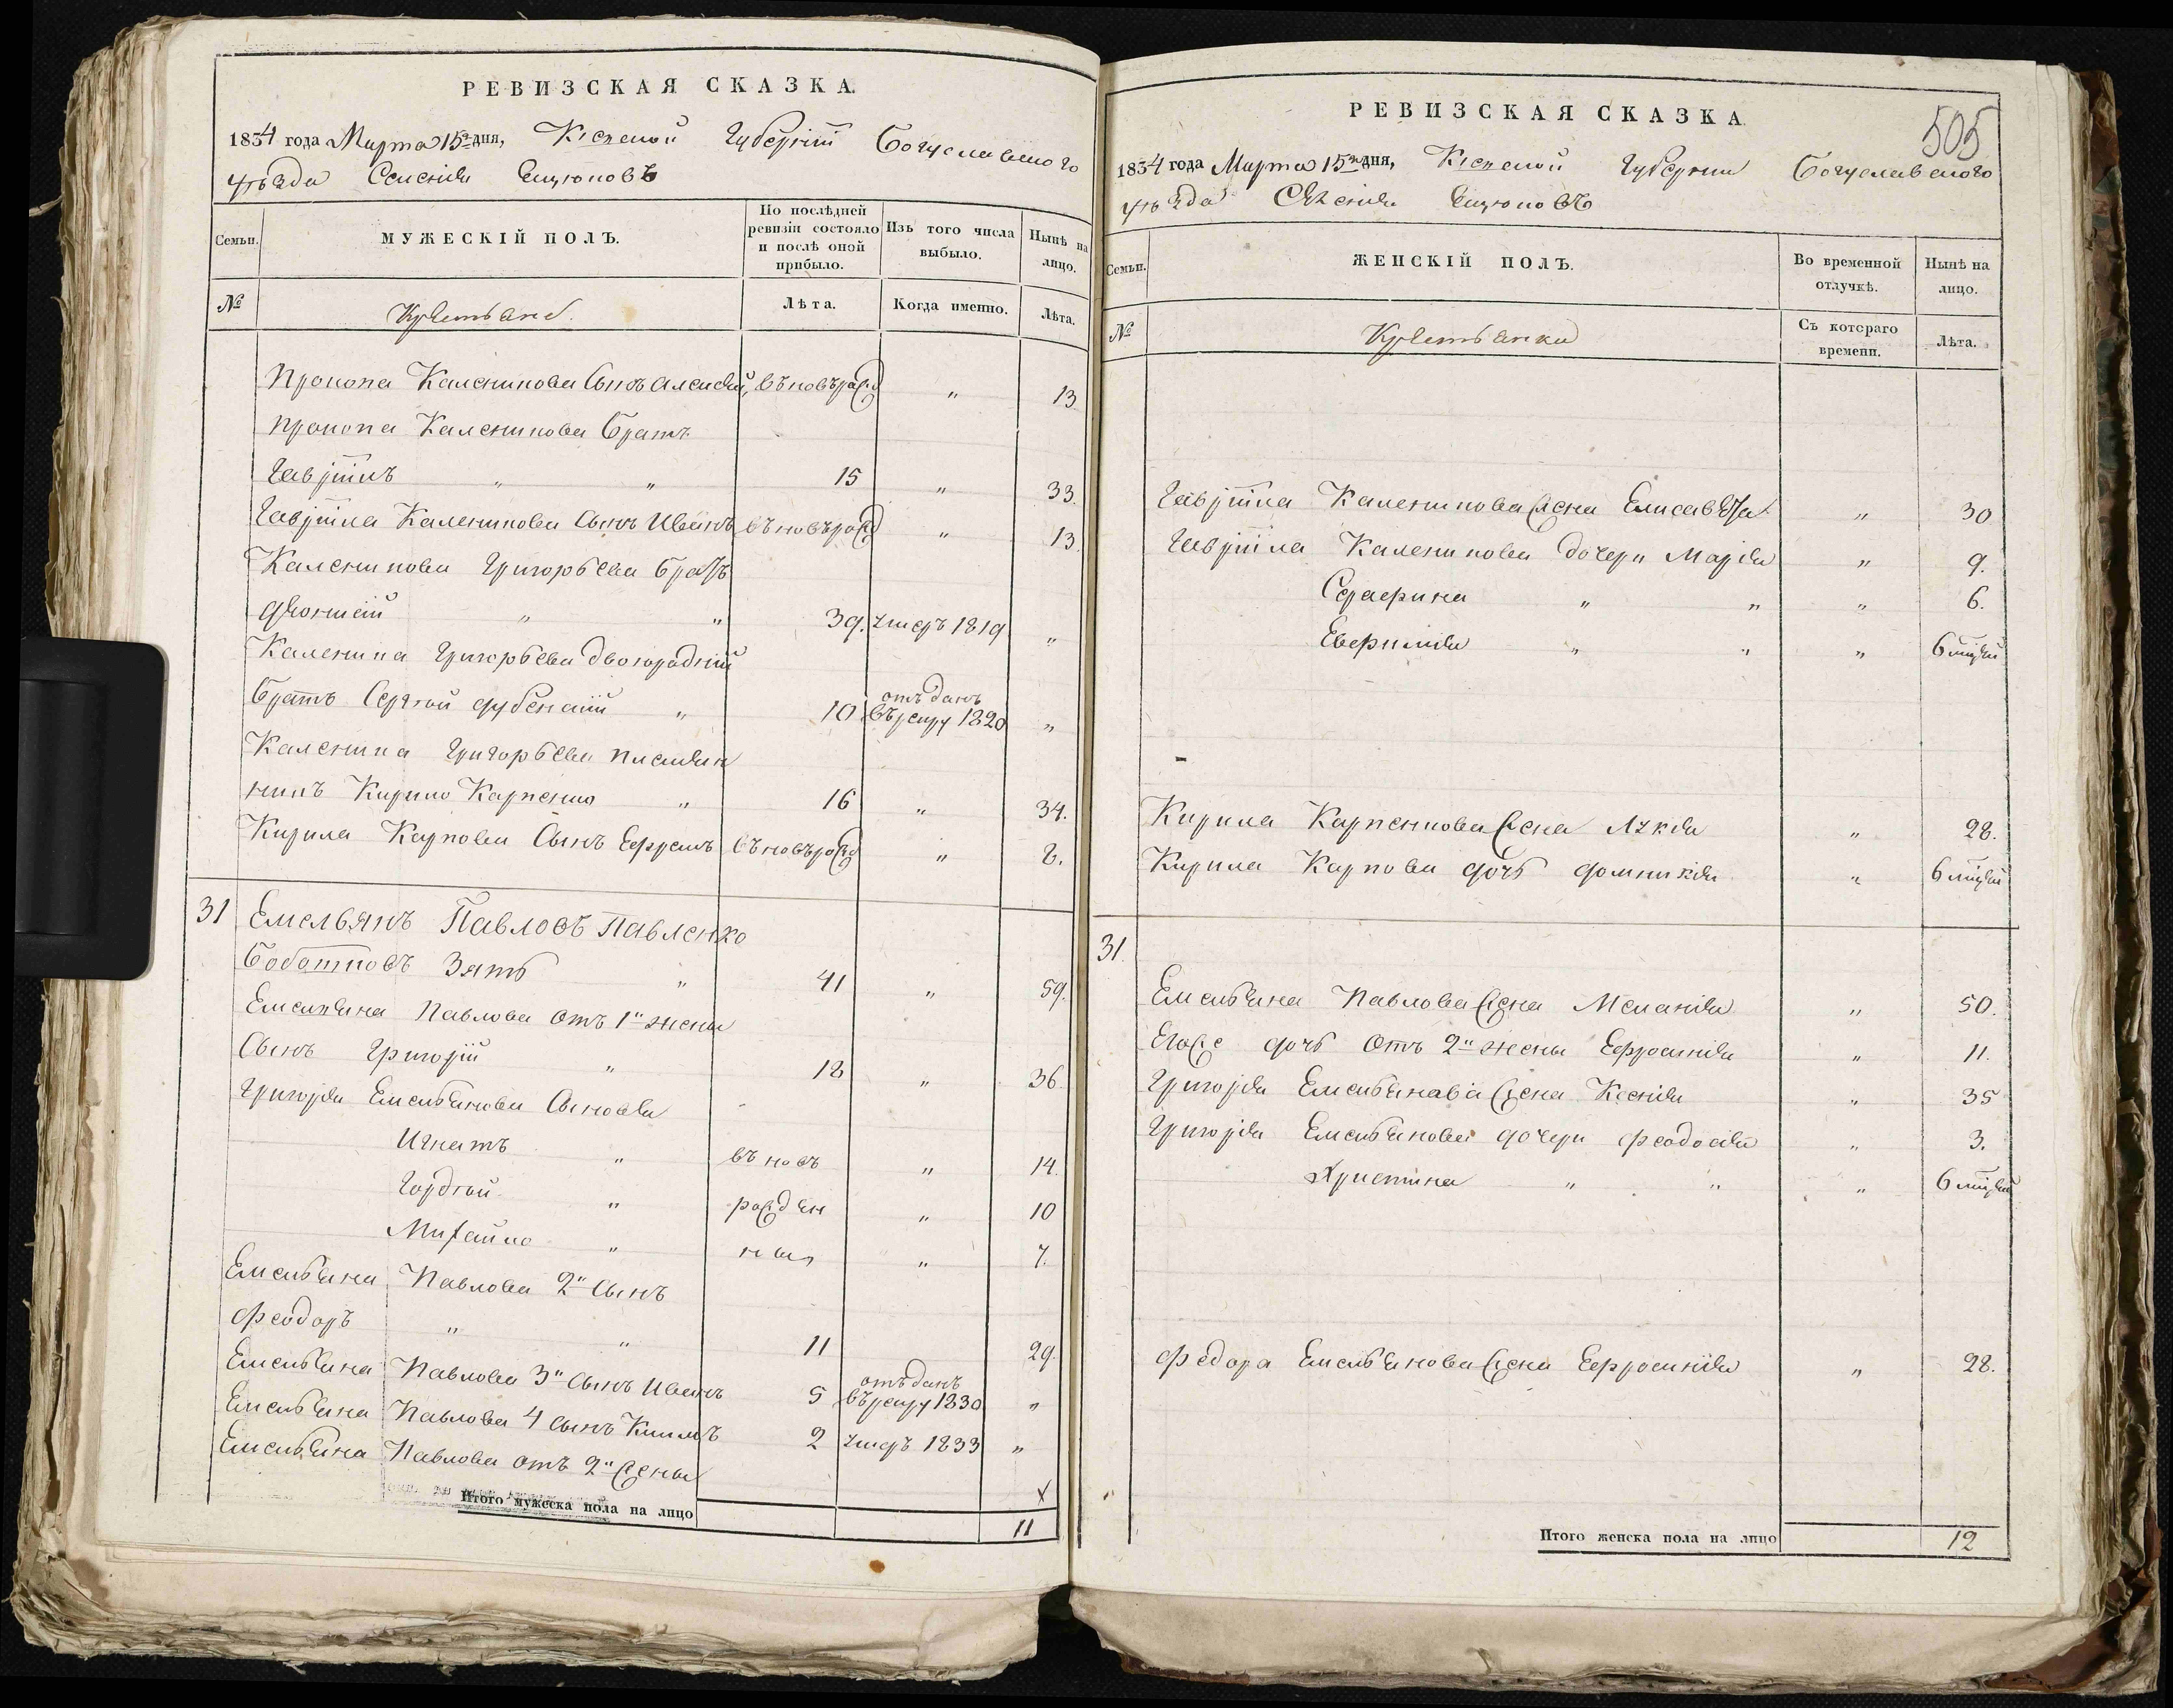 РЕВИЗСКАЯ СКАЗКА.
1834 года Марта 15го дня, Кіевской Губерніи Богуславского
уѣзда Селенія
Семьи. МУЖЕСКІЙ ПОЛЪ. По послѣдней ревизіи состояло и послѣ оной прибыло. Изъ того числа выбыло. Нынѣ на лицо.
№ Крестьяне. Лѣта. Когда именно. Лѣта.
Прокопа Каленикова Сынъ Алексѣй, въновърожд „ 13
Прокопа Каленикова братъ
Гавріилъ „ „ 15 „ 33.
Гавріила Каленикова Сынъ Иванъ въновърожд „ 13.
Каленикова Григорьева братъ
Леонтій „ „ 39. умеръ 1819 „
Каленика Григорьева двоюродній
братъ Сергѣй „ 10 отъданъ въ рекру 1820 „
Каленика Григорьева племян
никъ Кирило Карпенко „ 16 „ 34.
Кирила Карпова Сынъ Ефремъ въновърожд „ 8.
31 Емельянъ Павловъ Павленко
Зять „ 41 „ 59.
Емельяна Павлова отъ 1й жены
Сынъ Григорій „ 18 „ 36.
Григорія Емельянова Сыновья
Игнатъ „ въновъ „ 14.
Гордѣй „ рожден „ 10
Михайло „ ныя „ 7.
Емельяна Павлова 2й Сынъ
Феодоръ „ „ 11 29.
Емельяна Павлова 3й Сынъ Иванъ 5 отъданъ въ рекру 1830 „
Емельяна Павлова 4 Сынъ Климъ 2 умеръ 1833 „
Емельяна Павлова отъ 2й жены
х
Итого мужеска пола на лицо 11
РЕВИЗСКАЯ СКАЗКА
505
1834 года Марта 15го дня, Кіевской Губерніи Богуславского
уѣзда Селенія
Семьи. ЖЕНСКІЙ ПОЛЪ. Во временной отлучкѣ. Нынѣ на лицо.
№ Крестьянки Съ котораго времени. Лѣта.
Гавріила Каленикова жена Елисавета „ 30
Гавріила Каленикова дочери Марія „ 9.
Серафима „ „ „ 6.
Евфимія „ „ „ 6 місяц
Кирила Карпенкова жена Лукія „ 28.
Кирила Карпова дочь Домникія „ 6 місяц
31.
Емельяна Павлова жена Меланія „ 50.
Егоже дочь отъ 2й жены Ефросинія „ 11.
Григорія Емельянова жена Ксенія „ 35
Григорія Емельянова дочери Феодосія „ 3.
Христина „ „ „ 6 місяц
Федора Емельянова жена Ефросинія „ 28.
Итого женска пола на лицо 12